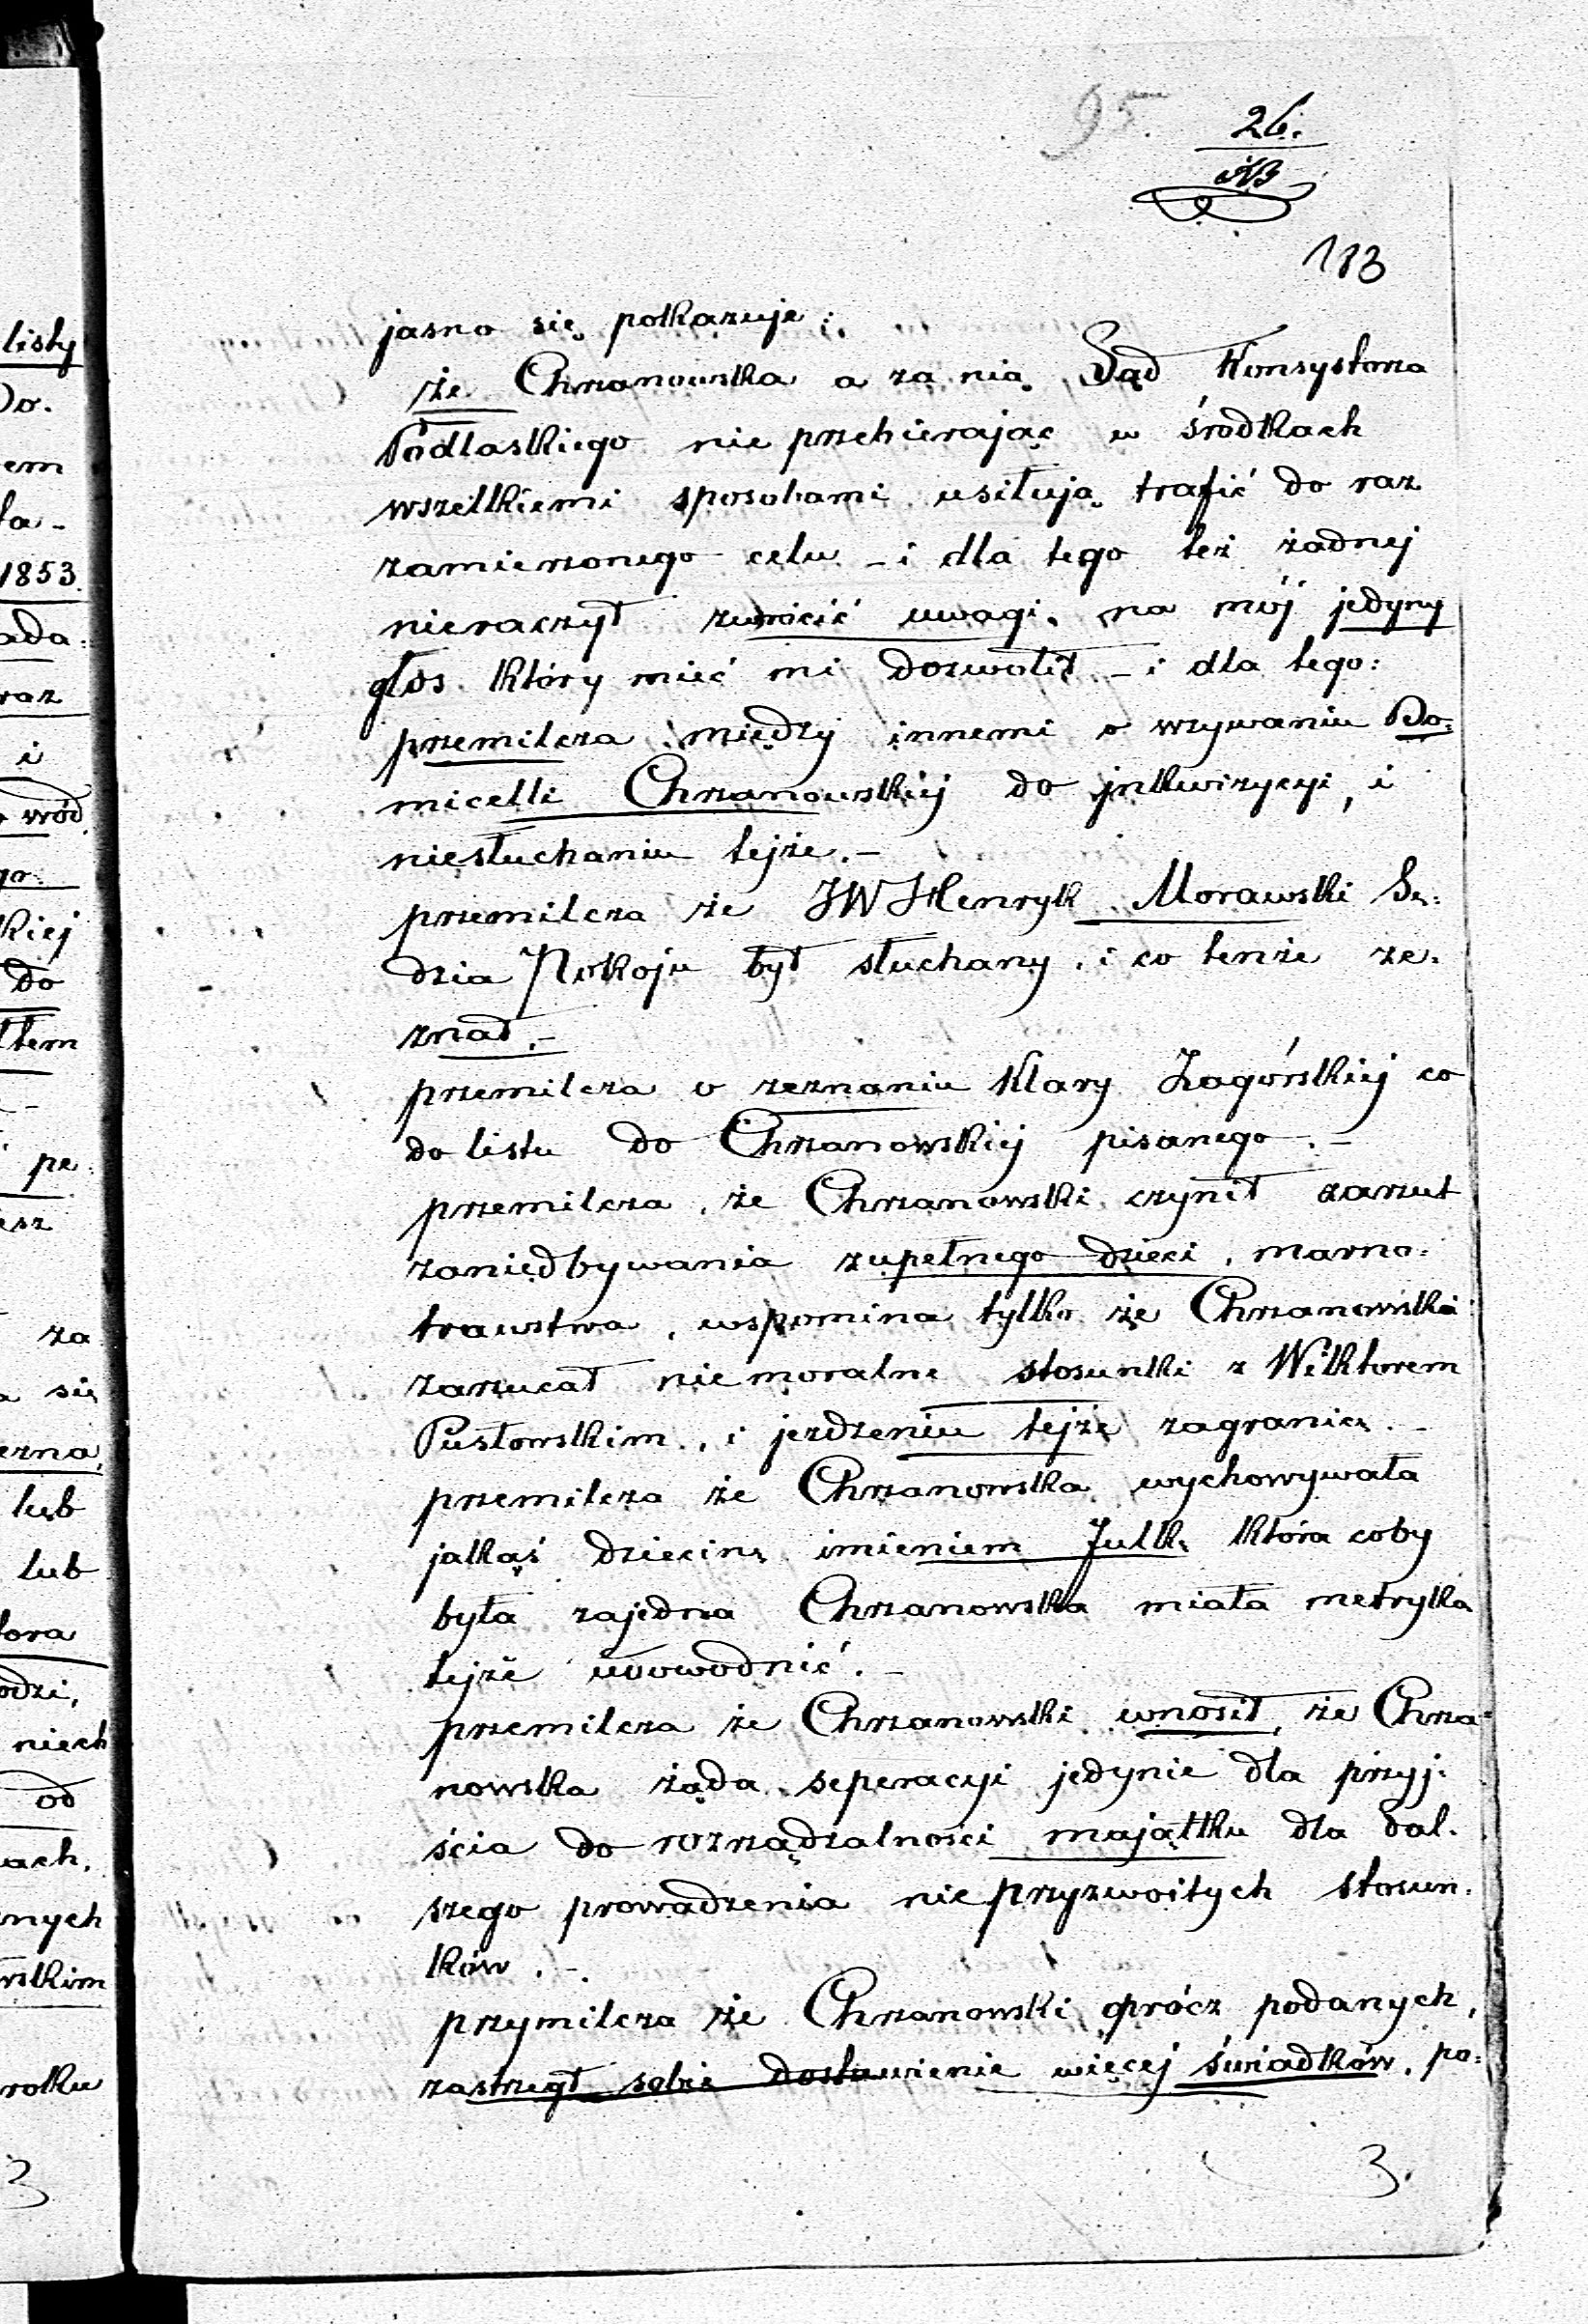 listy
Do.
em
ła-
1853.
ada:
raz
i
wód
go.
kiej
do
ktem
pe:
esz
za
a się
czna,
lub
lub
tora
odzi,
niech
od
ach.
nych
wskim
rolku
3
95.
26.
183
jasno się pokazuje:
że Chrzanowska a za nią Sąd Konsystorza
Podlaskiego nie przebierając w środkach
wszelkiemi sposobami usiłują trafić do raz
zamierzonego celu – i dla tego też żadnej
nieraczył zwrócić uwagi na mój jedyny
głos który mieć mi dozwolił – i dla tego:
przemilcza między innemi o wzywaniu Do:
micelli Chrzanowskiéj do jnkwizycyi, i
niesłuchaniu tejże. –
przemilcza że JW Henryk Morawski Sę:
dzia Pokoju był słuchany, i co tenże ze:
znał. –
przemilcza o zeznaniu Klary Zagórskiéj co
do listu do Chrzanowskiéj pisanego. –
przemilcza, że Chrzanowski czynił zarzut
zaniedbywania zupełnego dzieci, marno:
trawstwa, wspomina tylko że Chrzanowska
zarzucał niemoralne stosunki z Wiktorem
Pusłowskim, i jeżdżeniu tejże zagranicę. –
przemilcza że Chrzanowska wychowywała
jakąś dziecinę imieniem Julkę która coby
była zajedna Chrzanowska miała metryką
tejże udowodnić. –
przemilcza że Chrzanowski wnosił, że Chrza:
nowska żąda seperacyi jedynie dla przyj:
ścia do rozrządzalności majątku dla dal:
szego prowadzenia nieprzyzwoitych stosun:
ków. –
przymilcza że Chrzanowski oprócz podanych,
zastrzegł sobie dostawienie więcej świadków, po:
3.